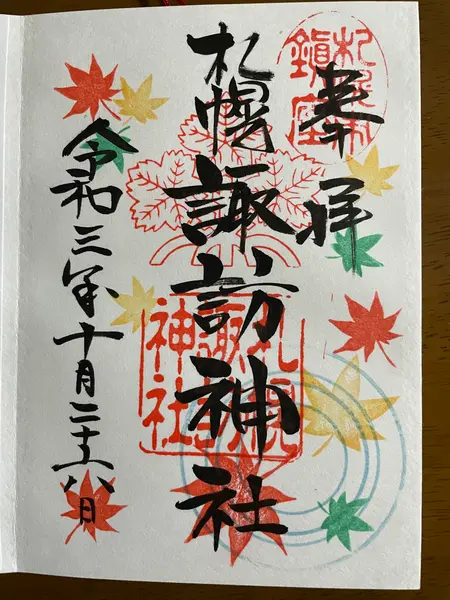 奉拝
札幌市
鎮座
札幌諏訪神社
札幌
諏訪
神社
令和三年十月二十六日